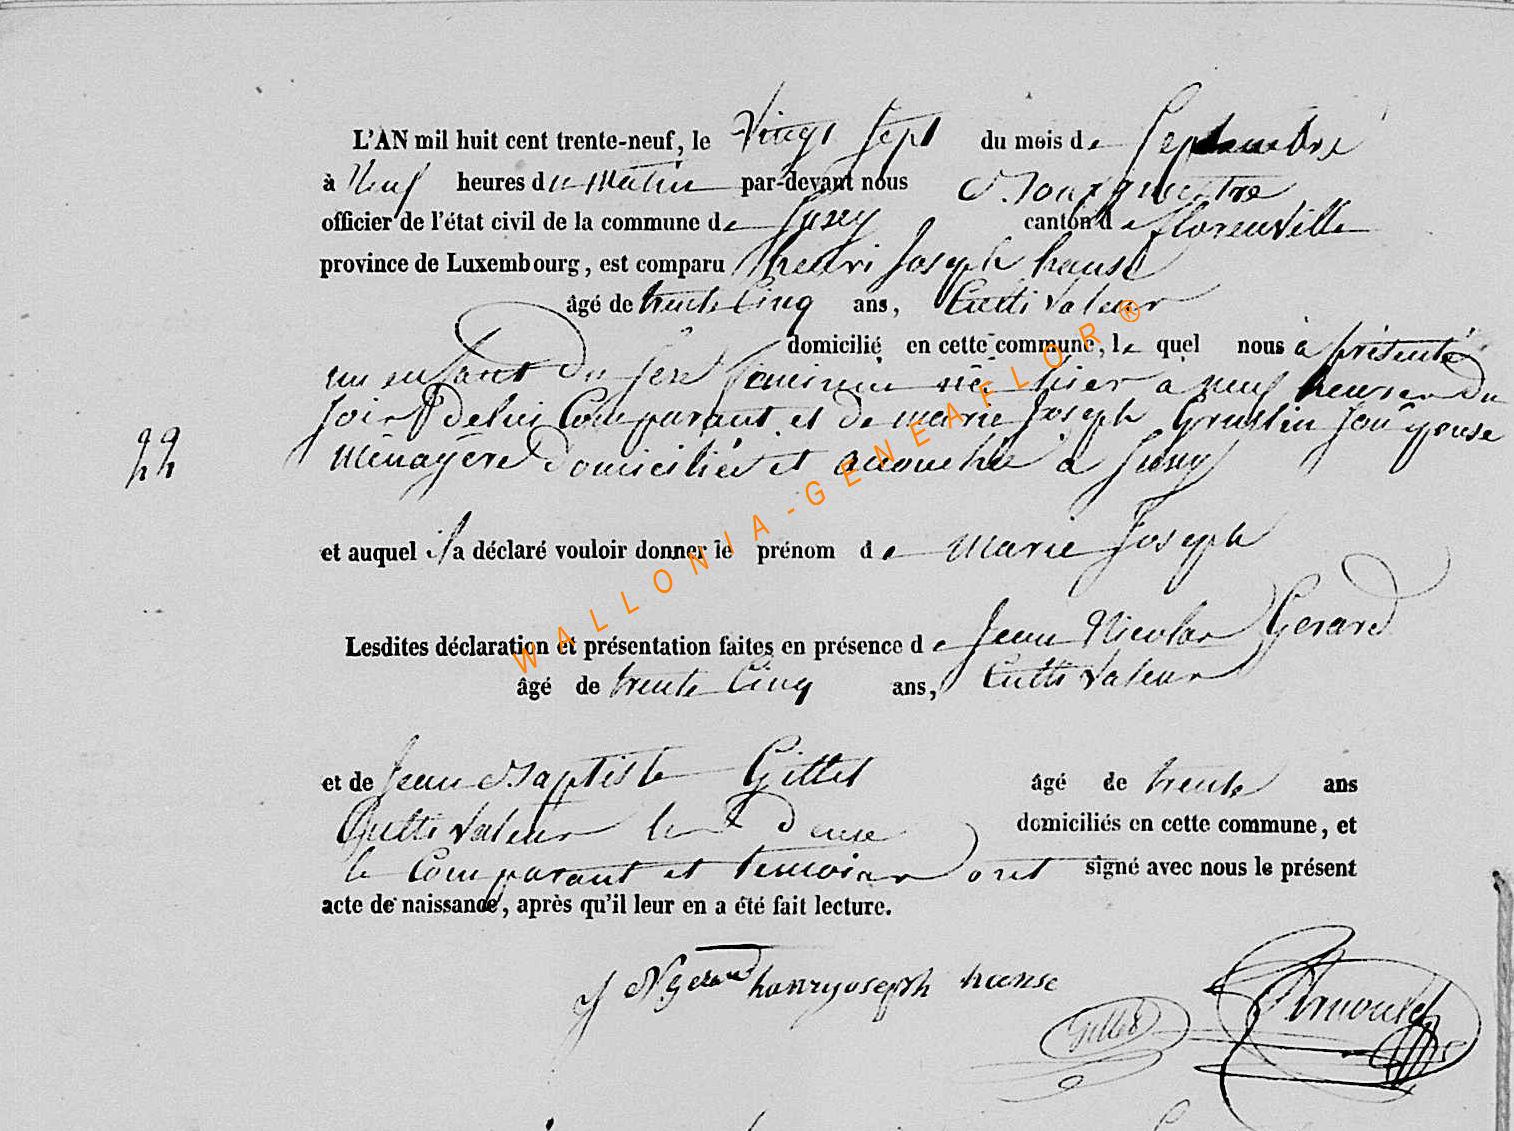 L'AN mil huit cent trente-neuf, le Vingt Sept du mois de Septembre
à Neuf heures du Matin par-devant nous Bourgmestre
officier de l'état civil de la commune de Suxy canton de florenville
province de Luxembourg, est comparu henri Joseph hanse
âgé de trente Cinq ans, Cultivateur
domicilié en cette commune, le quel nous à présenté
un enfant du sexe feminin né hier à neuf heures du
soir de lui Comparant et de marie Joseph Gruslin son épouse
ménagère domiciliée et accouchée à Suxy
22
et auquel il a déclaré vouloir donner le prénom de Marie Joseph
Lesdites déclaration et présentation faites en présence de Jean Nicolas Gerard
âgé de trente Cinq ans, Cultivateur
et de Jean Baptiste Gillet âgé de trente ans
Cultivateur les deux domiciliés en cette commune, et
le Comparant et temoins ont signé avec nous le présent
acte de naissance, après qu'il leur en a été fait lecture.
J N gerard henry joseph hanse
Gillet Arnould
WALLONIA-GENEAFLOR®